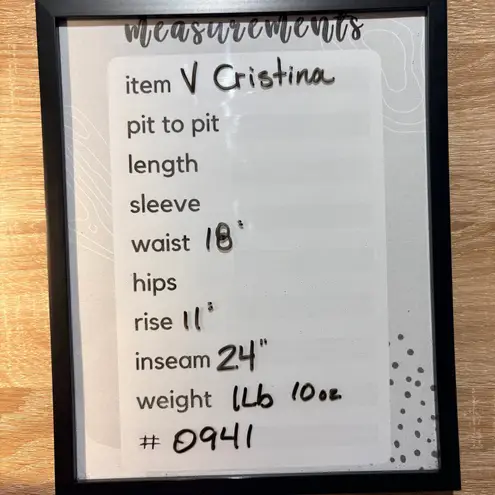 measurements
item V Cristina
pit to pit
length
sleeve
waist 18"
hips
rise 11"
inseam 24"
weight 1Lb 10oz
# 0941